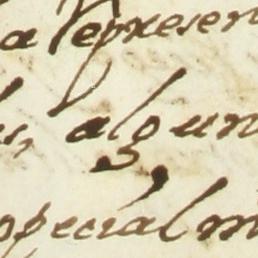 a represen
s, algun
special m